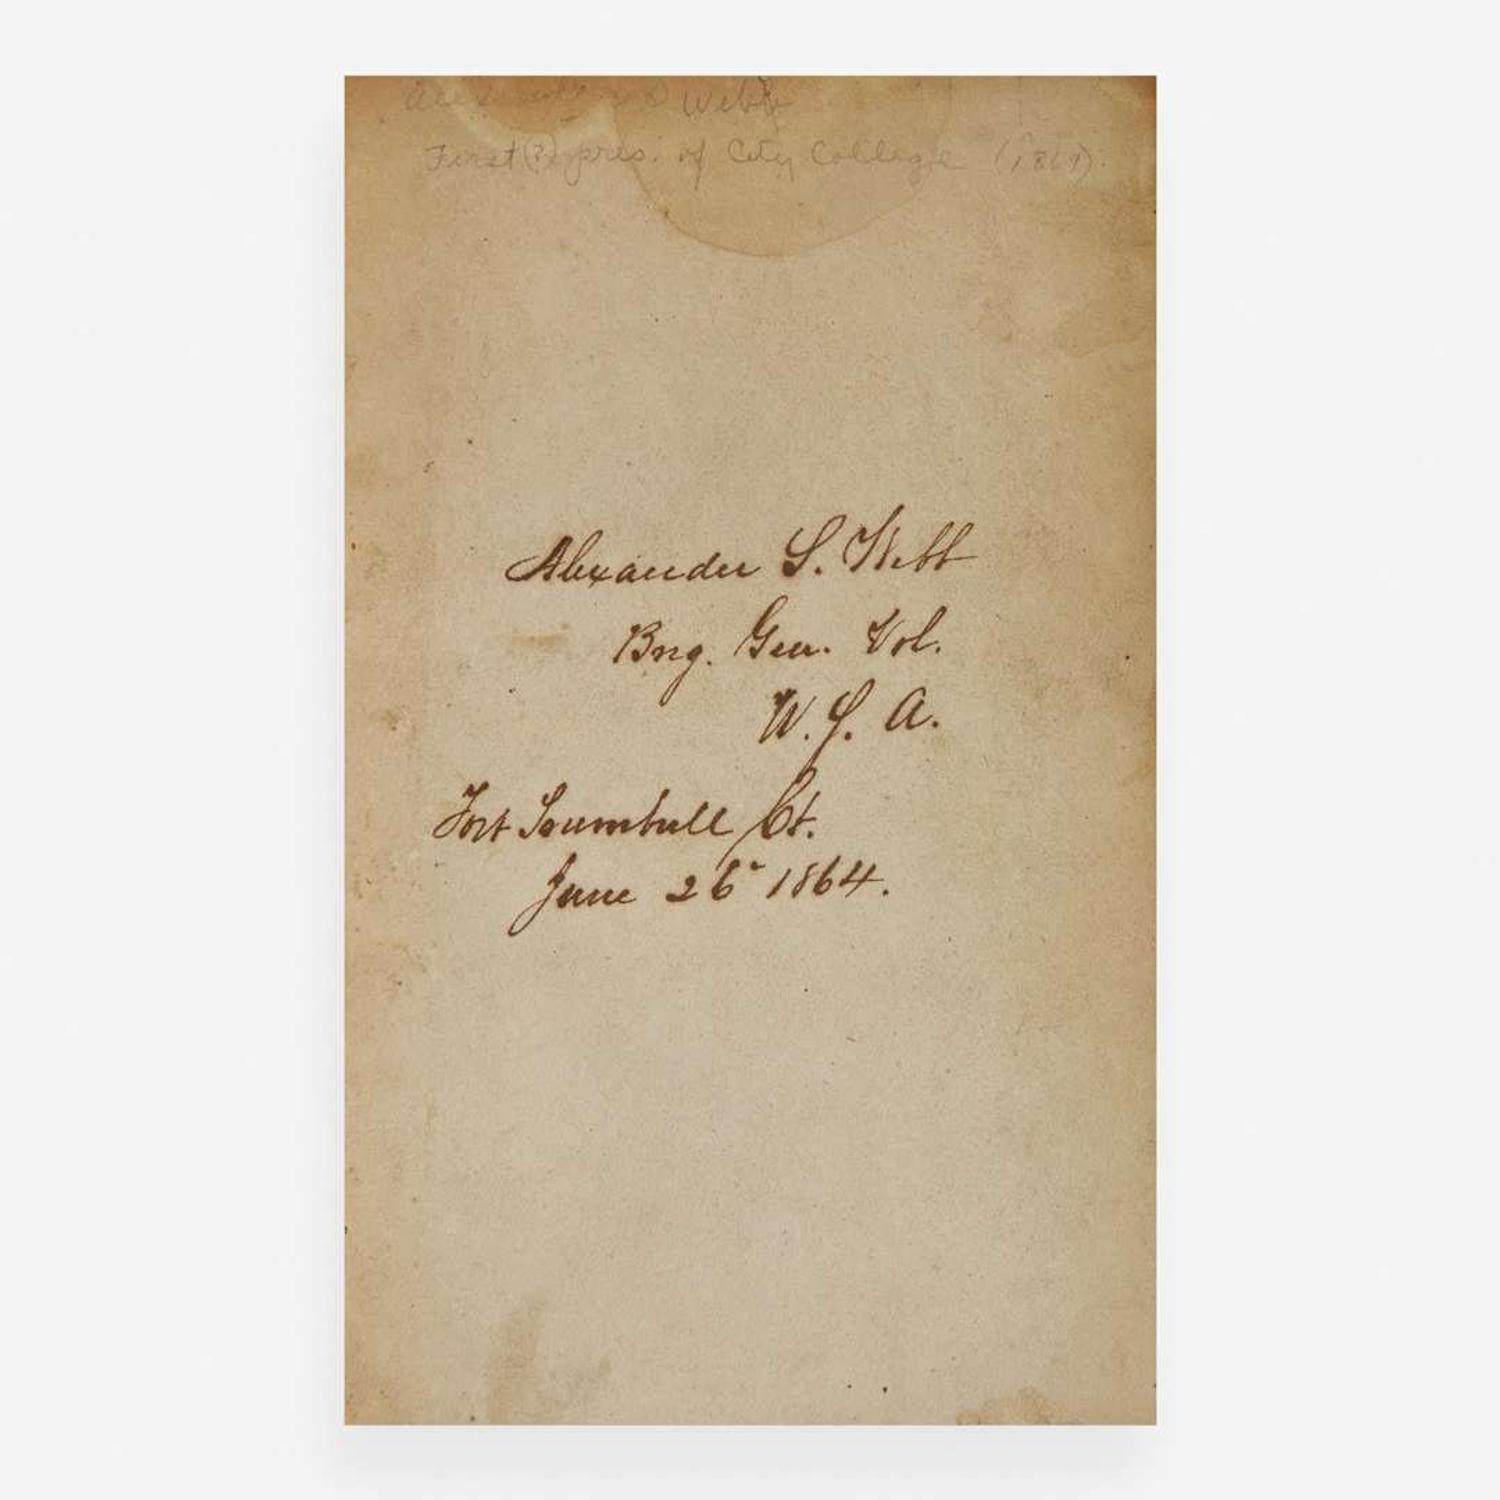 Alexander S Webb
First(?) pres. of City College (1869).
Alexander S. Webb
Brig. Gen. Vol.
U.S. A.
Fort Trumbull Ct.
June 26 1864.